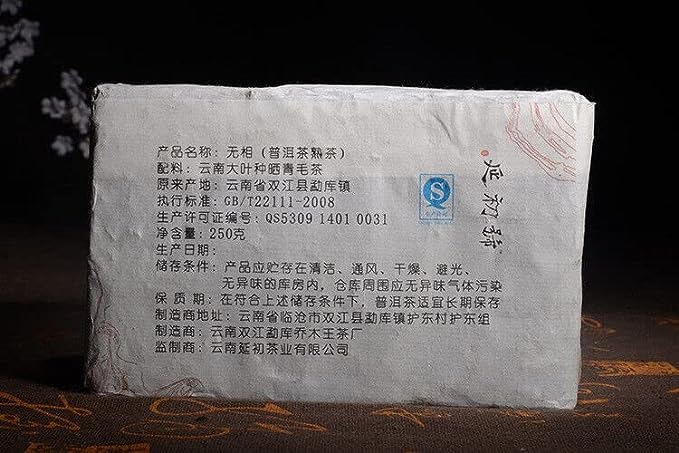 产品名称：无相（普洱茶熟茶）
配料：云南大叶种晒青毛茶
原来产地：云南省双江县勐库镇
执行标准：GB/T22111-2008
生产许可证编号：QS5309 1401 0031
净含量：250克
生产日期：
储存条件：产品应贮存在清洁、通风、干燥、避光、
无异味的库房内，仓库周围应无异味气体污染
保质期：在符合上述储存条件下，普洱茶适宜长期保存
制造商地址：云南省临沧市双江县勐库镇护东村护东组
制造商：云南双江勐库乔木王茶厂
监制商：云南延初茶业有限公司
延初号